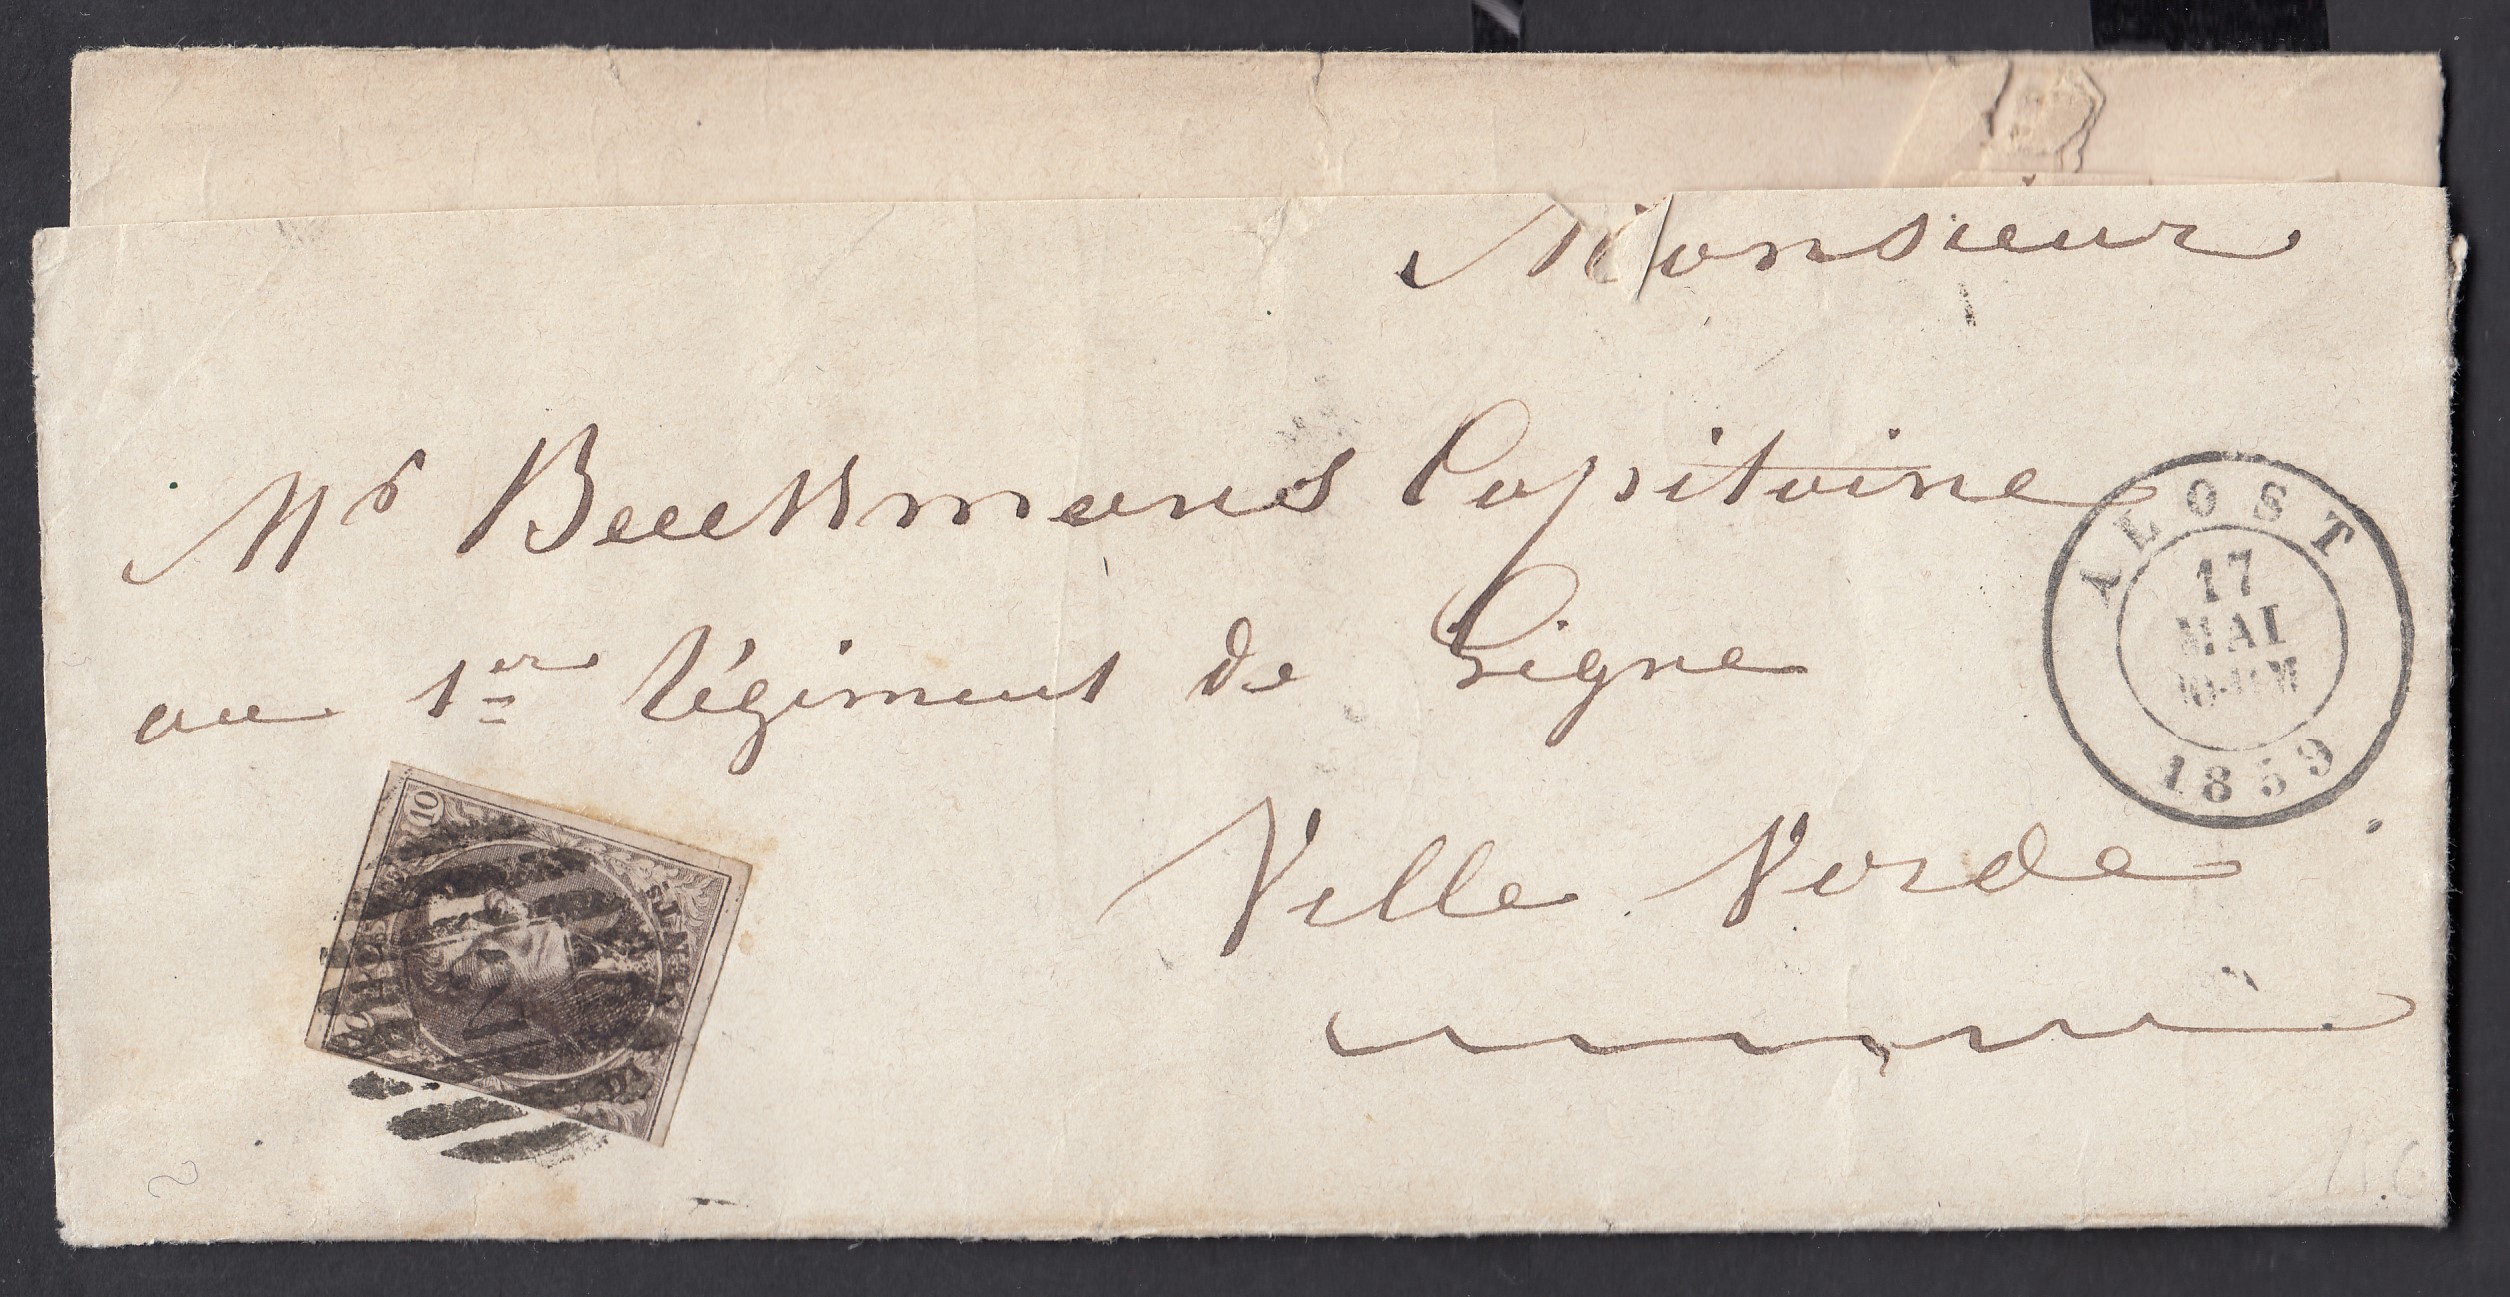 Monsieur
Mr Beeckmans Capitaine
au 1er régiment de Ligne
Ville Vorde
ALOST
17
MAI
1859
10